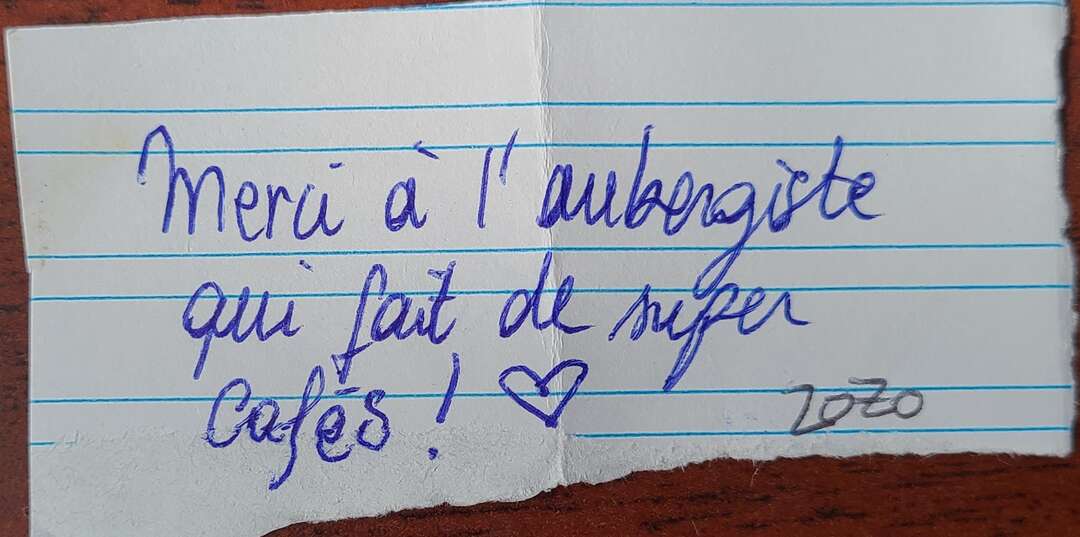 Merci à l'aubergiste
qui fait de super
cafés ! ♡
zozo